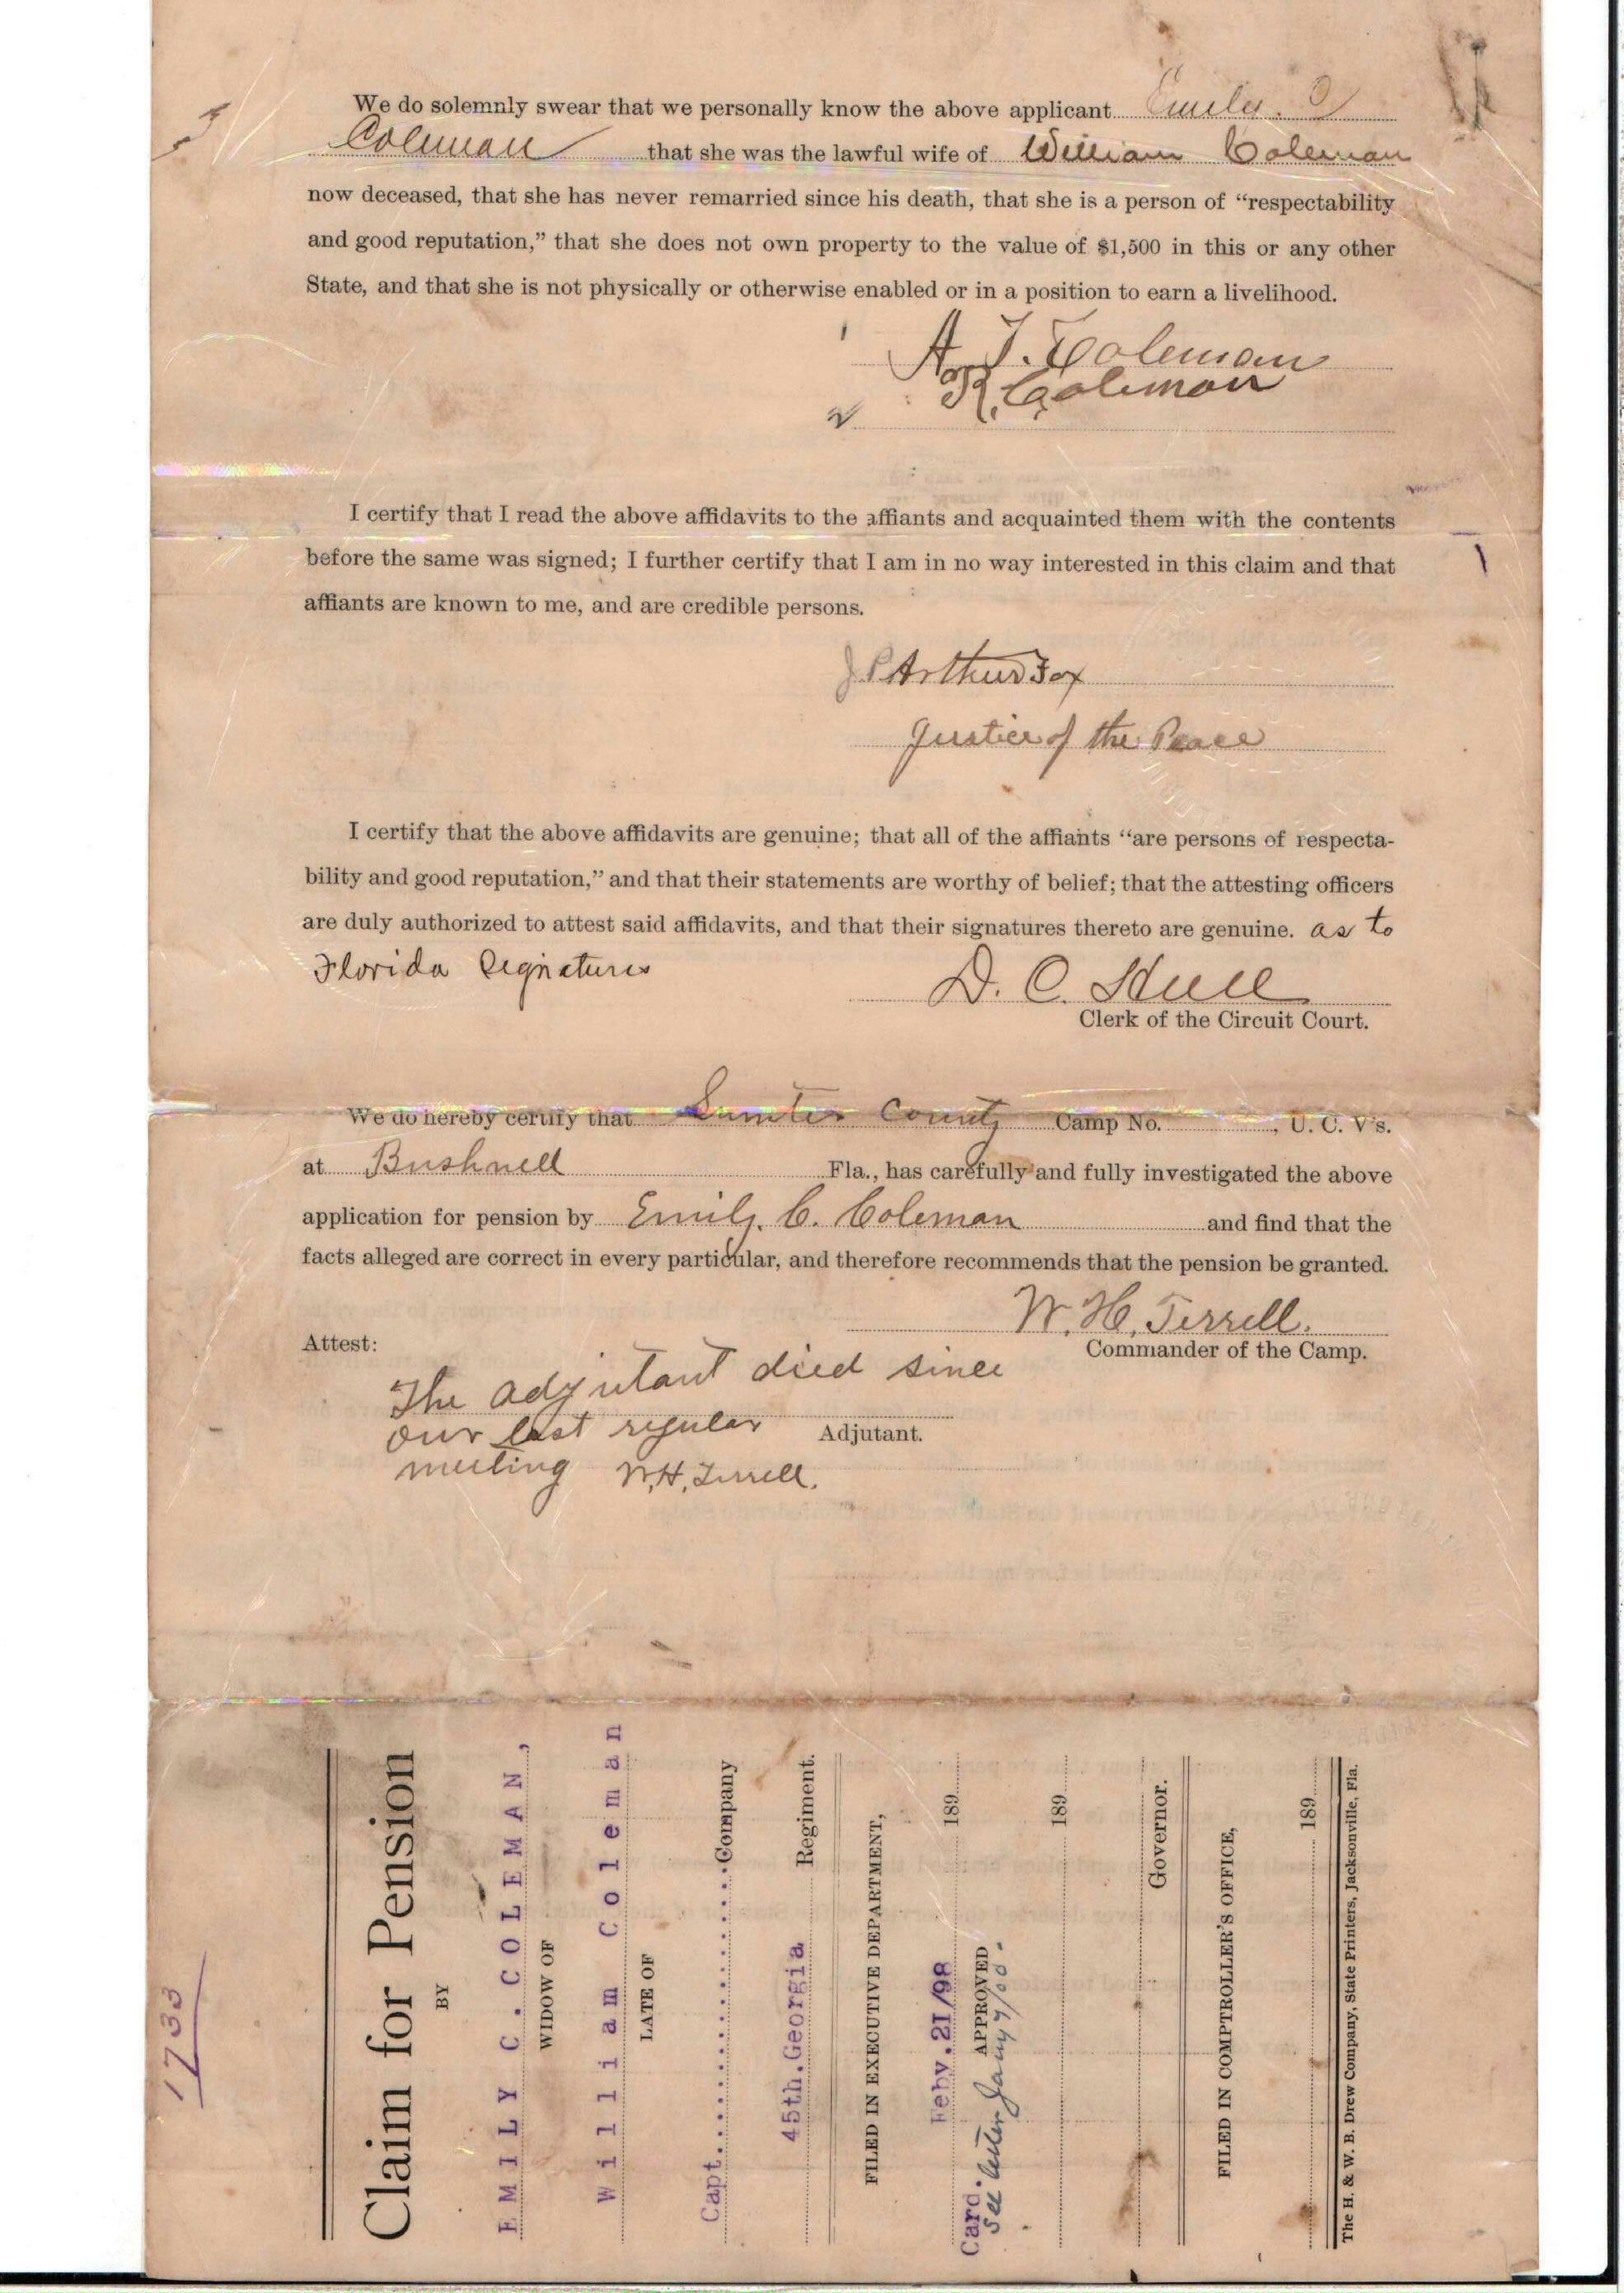 We do solemnly swear that we personally know the above applicant Emily. C
Coleman that she was the lawful wife of William Coleman
now deceased, that she has never remarried since his death, that she is a person of “respectability
and good reputation,” that she does not own property to the value of $1,500 in this or any other
State, and that she is not physically or otherwise enabled or in a position to earn a livelihood.
A. J. Coleman
R. Coleman
I certify that I read the above affidavits to the affiants and acquainted them with the contents
before the same was signed; I further certify that I am in no way interested in this claim and that
affiants are known to me, and are credible persons.
J P Arthur Fox
Justice of the Peace
I certify that the above affidavits are genuine; that all of the affiants “are persons of respecta-
bility and good reputation,” and that their statements are worthy of belief; that the attesting officers
are duly authorized to attest said affidavits, and that their signatures thereto are genuine. as to
Florida Signatures
D. C. Hull
Clerk of the Circuit Court.
We do hereby certify that Sumter County Camp No. , U. C. V's.
at Bushnell Fla., has carefully and fully investigated the above
application for pension by Emily. C. Coleman and find that the
facts alleged are correct in every particular, and therefore recommends that the pension be granted.
W. H. Terrell.
Commander of the Camp.
Attest:
The adjutant died since
our last regular
Adjutant.
meeting W. H. Terrell.
1733
Claim for Pension
BY
EMILY C. COLEMAN,
WIDOW OF
William Coleman
LATE OF
Capt. Company
45th. Georgia Regiment.
FILED IN EXECUTIVE DEPARTMENT,
Feby. 21/98 189
Card. APPROVED
See letter Jany 7/00. 189
Governor.
FILED IN COMPTROLLER'S OFFICE,
189
The H. & W. B. Drew Company, State Printers, Jacksonville, Fla.